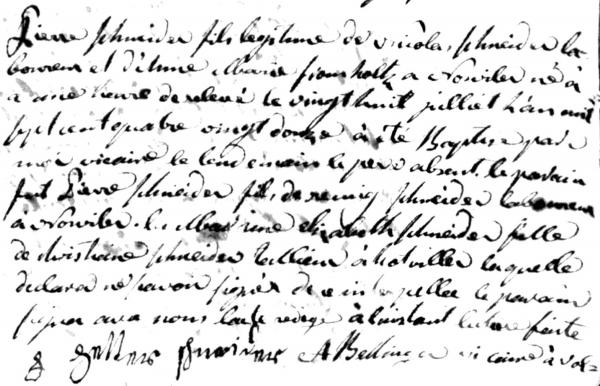 Pierre schneider fils legitime de nicolas schneider la-
boureur et d'Anne Marie fromholtz a Nowiler né à
a une heure de relevé le vingt huit julliet L'an mil
sept cent quatre vingt douze à été Baptise par
moi vicaire le lendemain le pere absent, le parain
fut Pierre schneider fils de remig schneider laboureur
à Nowiler la Maraine elisabeth schneider fille
de christiane schneider tallieur à hotviller laquelle
declara ne savoir signér de ce interpellee le parain
signa avec nous l'acte redigé à l'instant lecture faite
schneider A Bettinger vicaire à Vol=